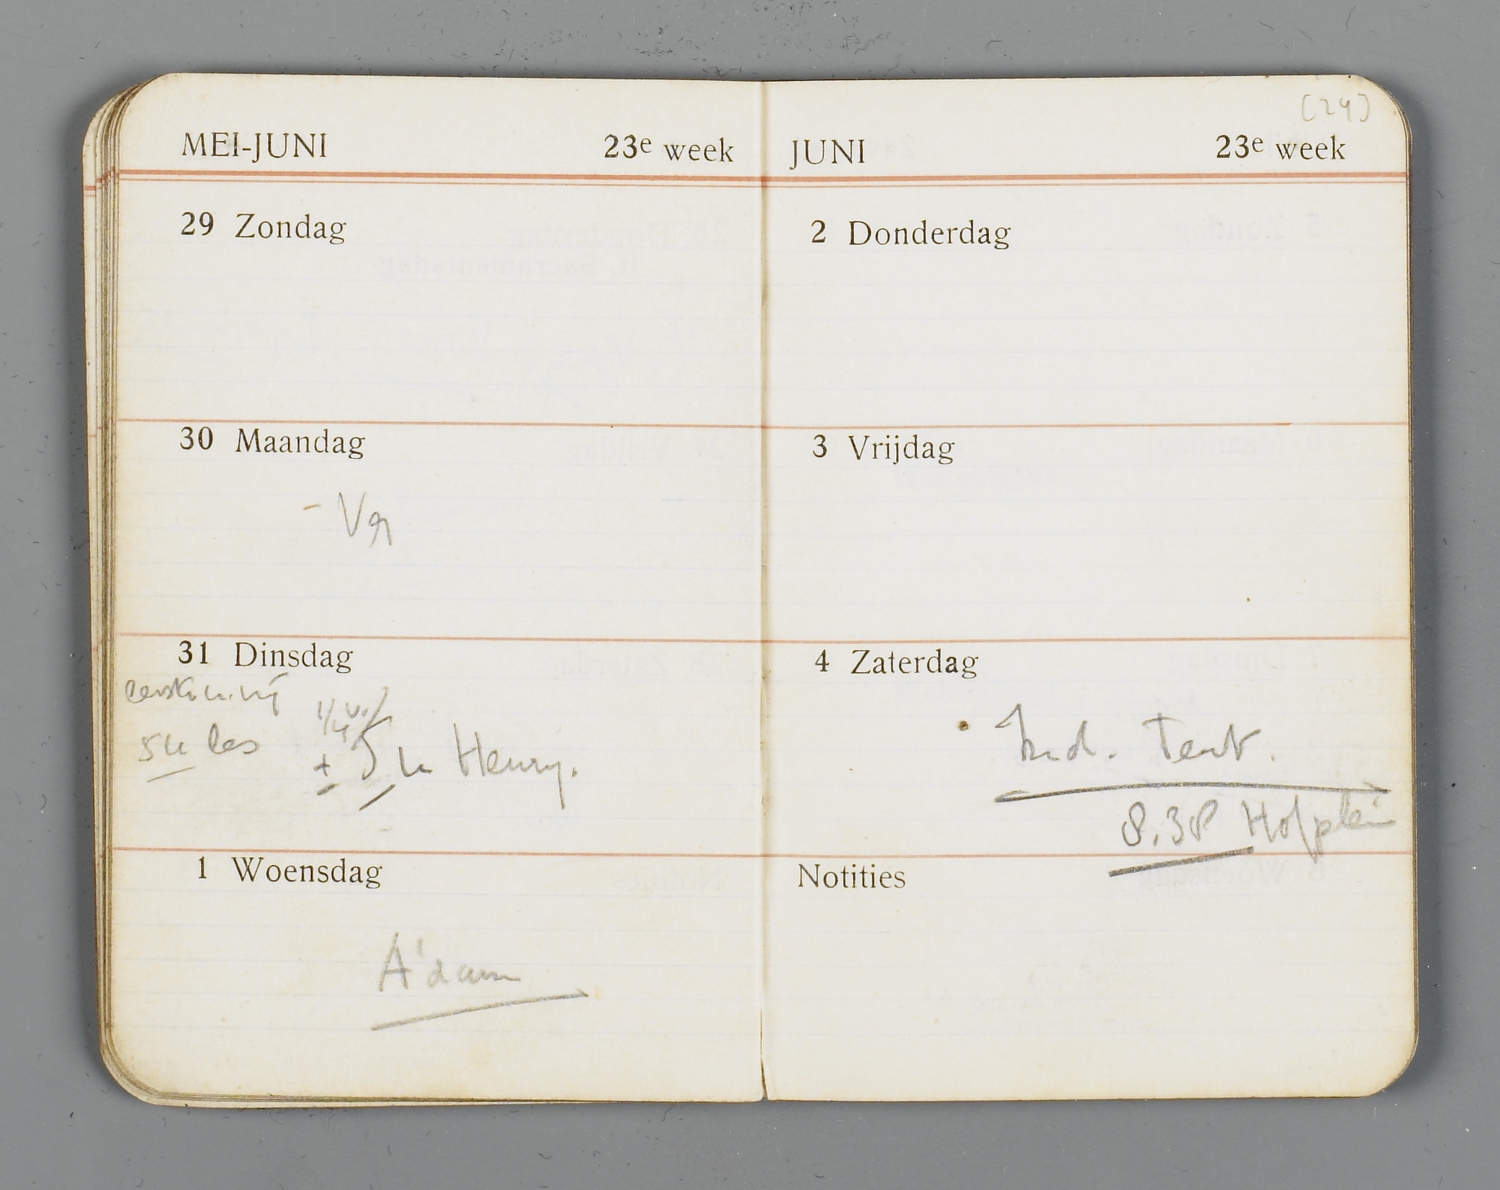 MEI-JUNI 23e week
29 Zondag
30 Maandag
31 Dinsdag
5u les
± 5 u Henry.
1 Woensdag
A'dam
[24]
JUNI 23e week
2 Donderdag
3 Vrijdag
4 Zaterdag
Ind. Tent.
8.38 Hofplein
Notities